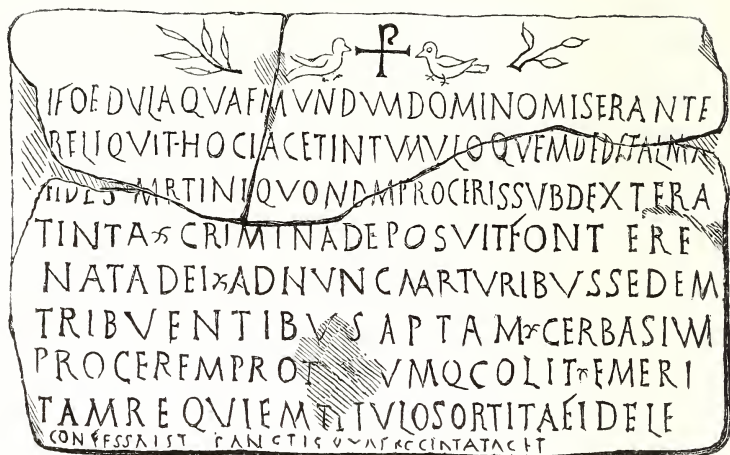 IFOEDVLAQVAEMVNDVMDOMINOMISERANTE
RELIQVIT·HOCIACETINTVMVLOQVEMDEDITALMA
FIDES MRTINIQVONDMPROCERISSVBDEXTERA
TINTA CRIMINADEPOSVITFONT ERE
NATADEI ADNVNCMARTVRIBVSSEDEM
TRIBVENTIBVSAPTAM CERBASIVM
PROCEREMPROT VMQCOLIT EMERI
TAMREQVIEMTITVLOSORTITAFIDELE
CONFESSAIST SANCTIS